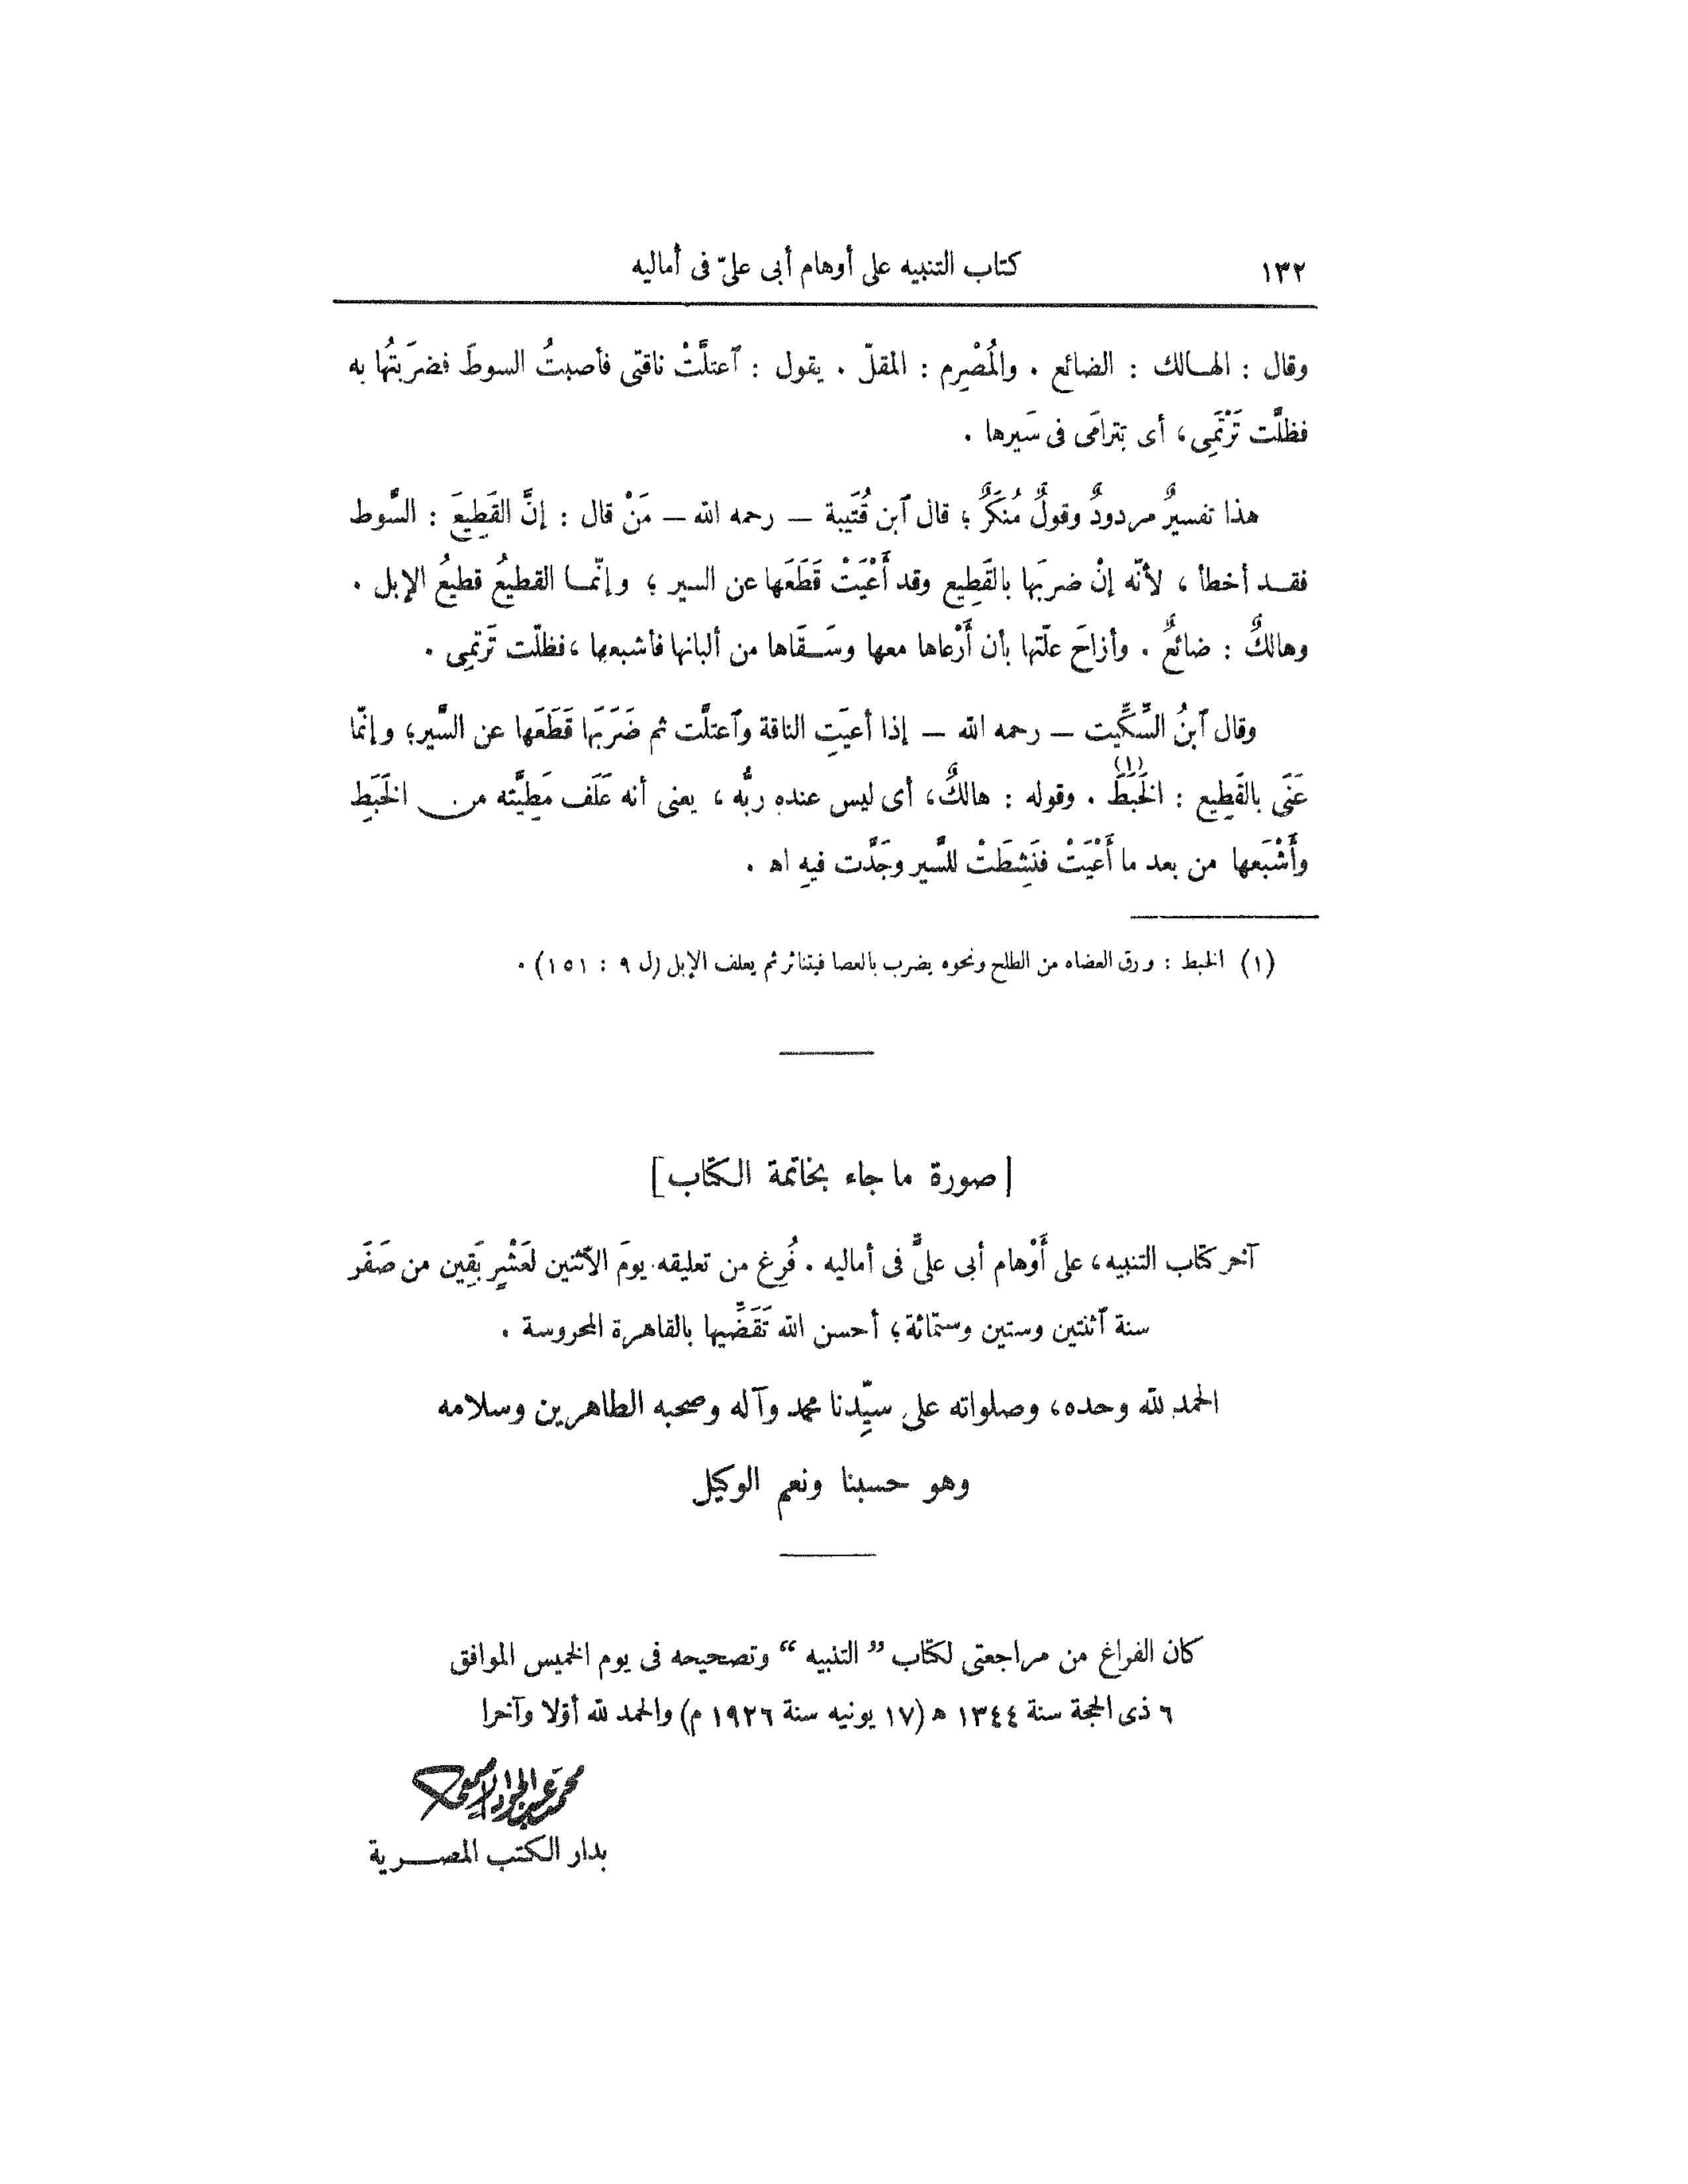 ١٣٢ كتاب التنبيه على أوهام أبى علىّ فى أماليه
وقال : الهـالك : الضائع . والمُصْرِم : المقلّ . يقول : ٱعتلَّتْ ناقتى فأصبتُ السوطَ فضرَبتُها به
فظلَّت تَرْتَمِى، أى تترامَى فى سَيرها .
هذا تفسيرٌ مردودٌ وقولٌ مُنكَرٌ ؛ قال ٱبن قُتَيبة — رحمه الله — مَنْ قال : إنَّ القَطِيعَ : السَّوط
فقـد أخطأ ، لأنّه إنْ ضربَها بالقَطِيع وقد أَعْيَتْ قَطَعَها عن السير ؛ وإنّمـا القطيعُ قطيعُ الإبل .
وهالكٌ : ضائعٌ . وأزاحَ علّتها بأن أَرْعاها معها وسَـقَاها من ألبانها فأشبعها ، فظلّت تَرتمِى .
وقال ٱبنُ السِّكِّيت — رحمه الله — إذا أعيَتِ الناقة وٱعتلَّت ثم ضَرَبَها قَطَعَها عن السَّير؛ وإنّما
عَنَى بالقَطِيع : الخَبَطَ (١) . وقوله : هالكٌ، أى ليس عنده ربُّه ، يعنى أنه عَلَف مَطِيَّته من الخَبَطِ
وأَشْبَعها من بعد ما أَعْيَتْ فنَشِطَتْ للسَّير وجَدَّت فيهِ اه .
(١) الخبط : ورق العضاه من الطلح ونحوه يضرب بالعصا فيتناثر ثم يعلف الإبل (ل ٩ : ١٥١) .
[صورة ما جاء بخاتمة الكتاب]
آخر كتاب التنبيه، على أَوْهام أبى علىٍّ فى أماليه . فُرِغ من تعليقه يومَ الاثنين لعَشْرٍ بَقِين من صَفَر
سنة ٱثنتين وستين وستمائة؛ أحسن الله تَقَضِّيها بالقاهرة المحروسة .
الحمد لله وحده، وصلواته على سيِّدنا محمد وآله وصحبه الطاهرين وسلامه
وهو حسبنا ونعم الوكيل
كان الفراغ من مراجعتى لكتاب ”التنبيه“ وتصحيحه فى يوم الخميس الموافق
٦ ذى الحجة سنة ١٣٤٤ ه (١٧ يونيه سنة ١٩٢٦ م) والحمد لله أوّلا وآخرا
محمد عبد الجواد الأصمعى
بدار الكتب المصـرية